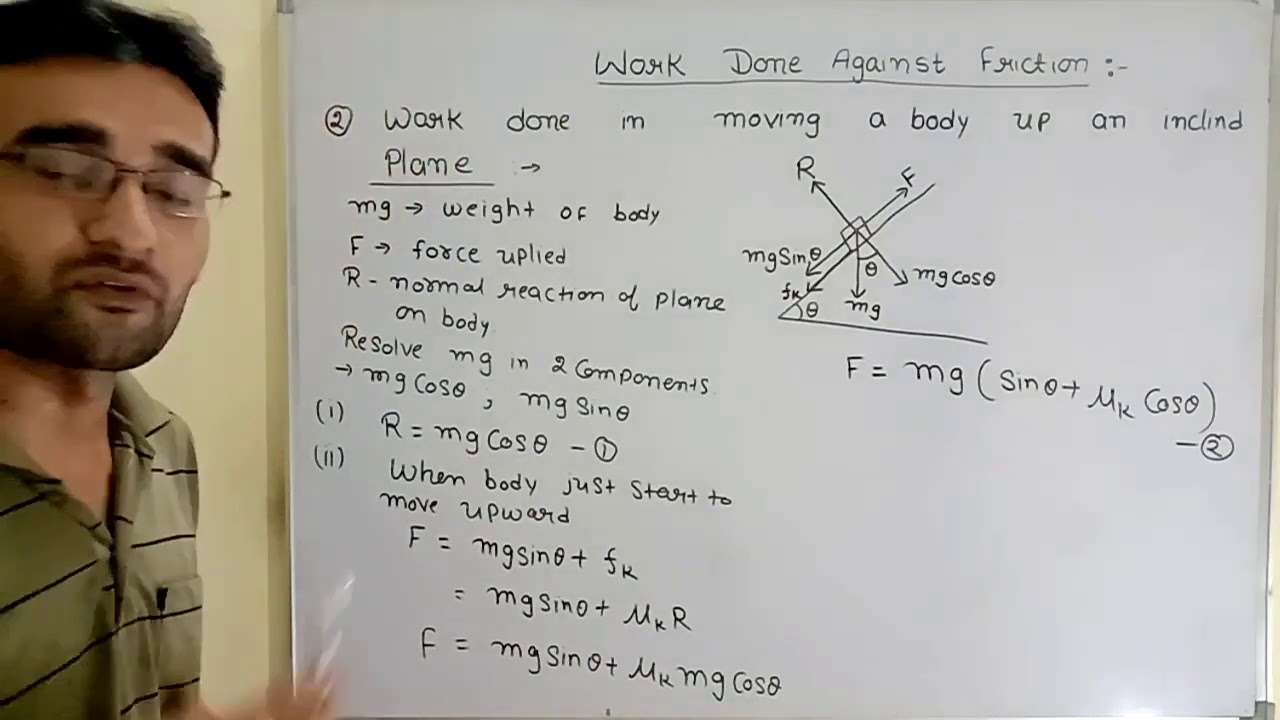 Work Done Against Friction :-
② Work done in moving a body up an inclind
Plane →
mg → weight of body
F → force uplied
R - normal reaction of plane
on body
Resolve mg in 2 Components
→ mg Cosθ , mg Sinθ
(i) R = mg Cosθ - ①
(ii) When body just start to
move upward
F = mgsinθ + fK
= mgsinθ + μK R
F = mg Sinθ + μK mg Cosθ
R
F
mgSinθ
θ
mgcosθ
fK
θ
mg
F = mg (Sinθ + μK Cosθ)
- ②